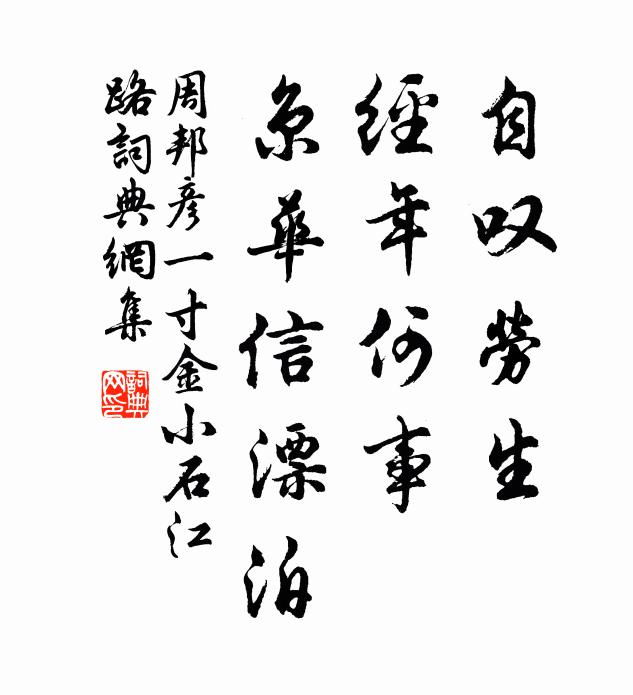 自叹勞生
經年何事
京華信漂泊
周邦彦一寸金小石江
路詞典網集
詞典
网印